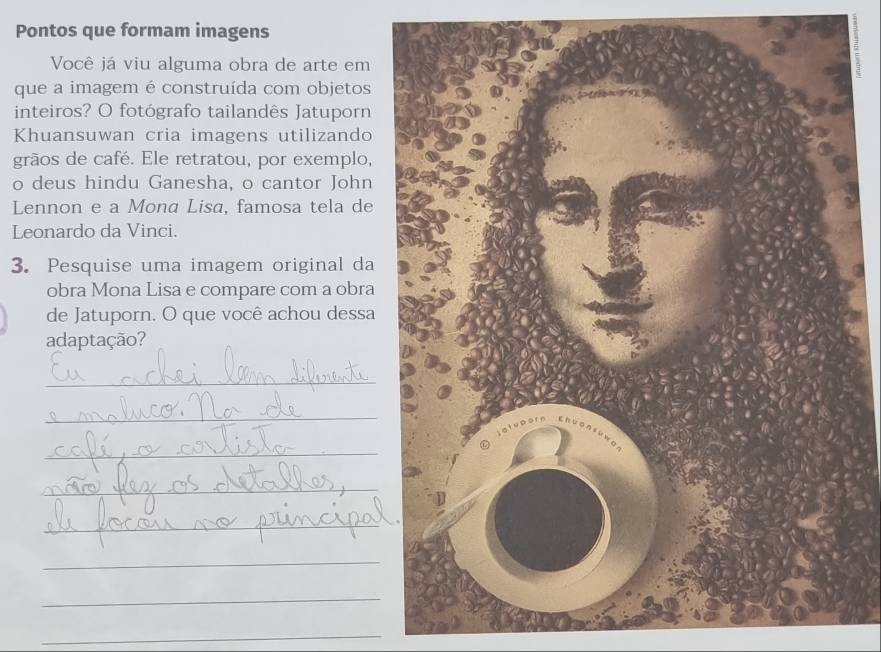 Pontos que formam imagens
Você já viu alguma obra de arte em
que a imagem é construída com objetos
inteiros? O fotógrafo tailandês Jatuporn
Khuansuwan cria imagens utilizando
grãos de café. Ele retratou, por exemplo,
o deus hindu Ganesha, o cantor John
Lennon e a Mona Lisa, famosa tela de
Leonardo da Vinci.
3. Pesquise uma imagem original da
obra Mona Lisa e compare com a obra
de Jatuporn. O que você achou dessa
adaptação?
Eu achei bem diferente
e maluco. Na de
café, o artista
não fez os detalhes,
ele focou no principal.
© Jatuporn Khuansuwan
Jatuporn Khuansuwan